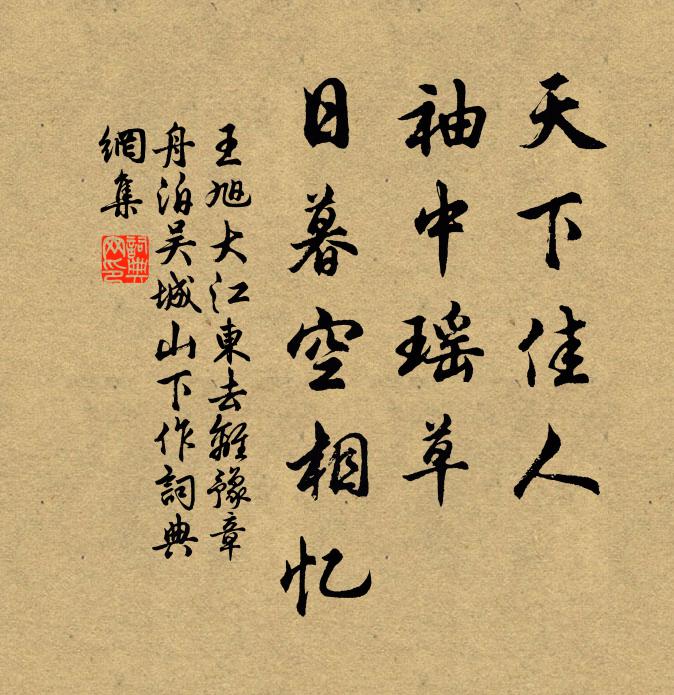 天下佳人
袖中瑶草
日暮空相忆
王旭大江東去離豫章
舟泊吴城山下作詞典
網集
詞典網印